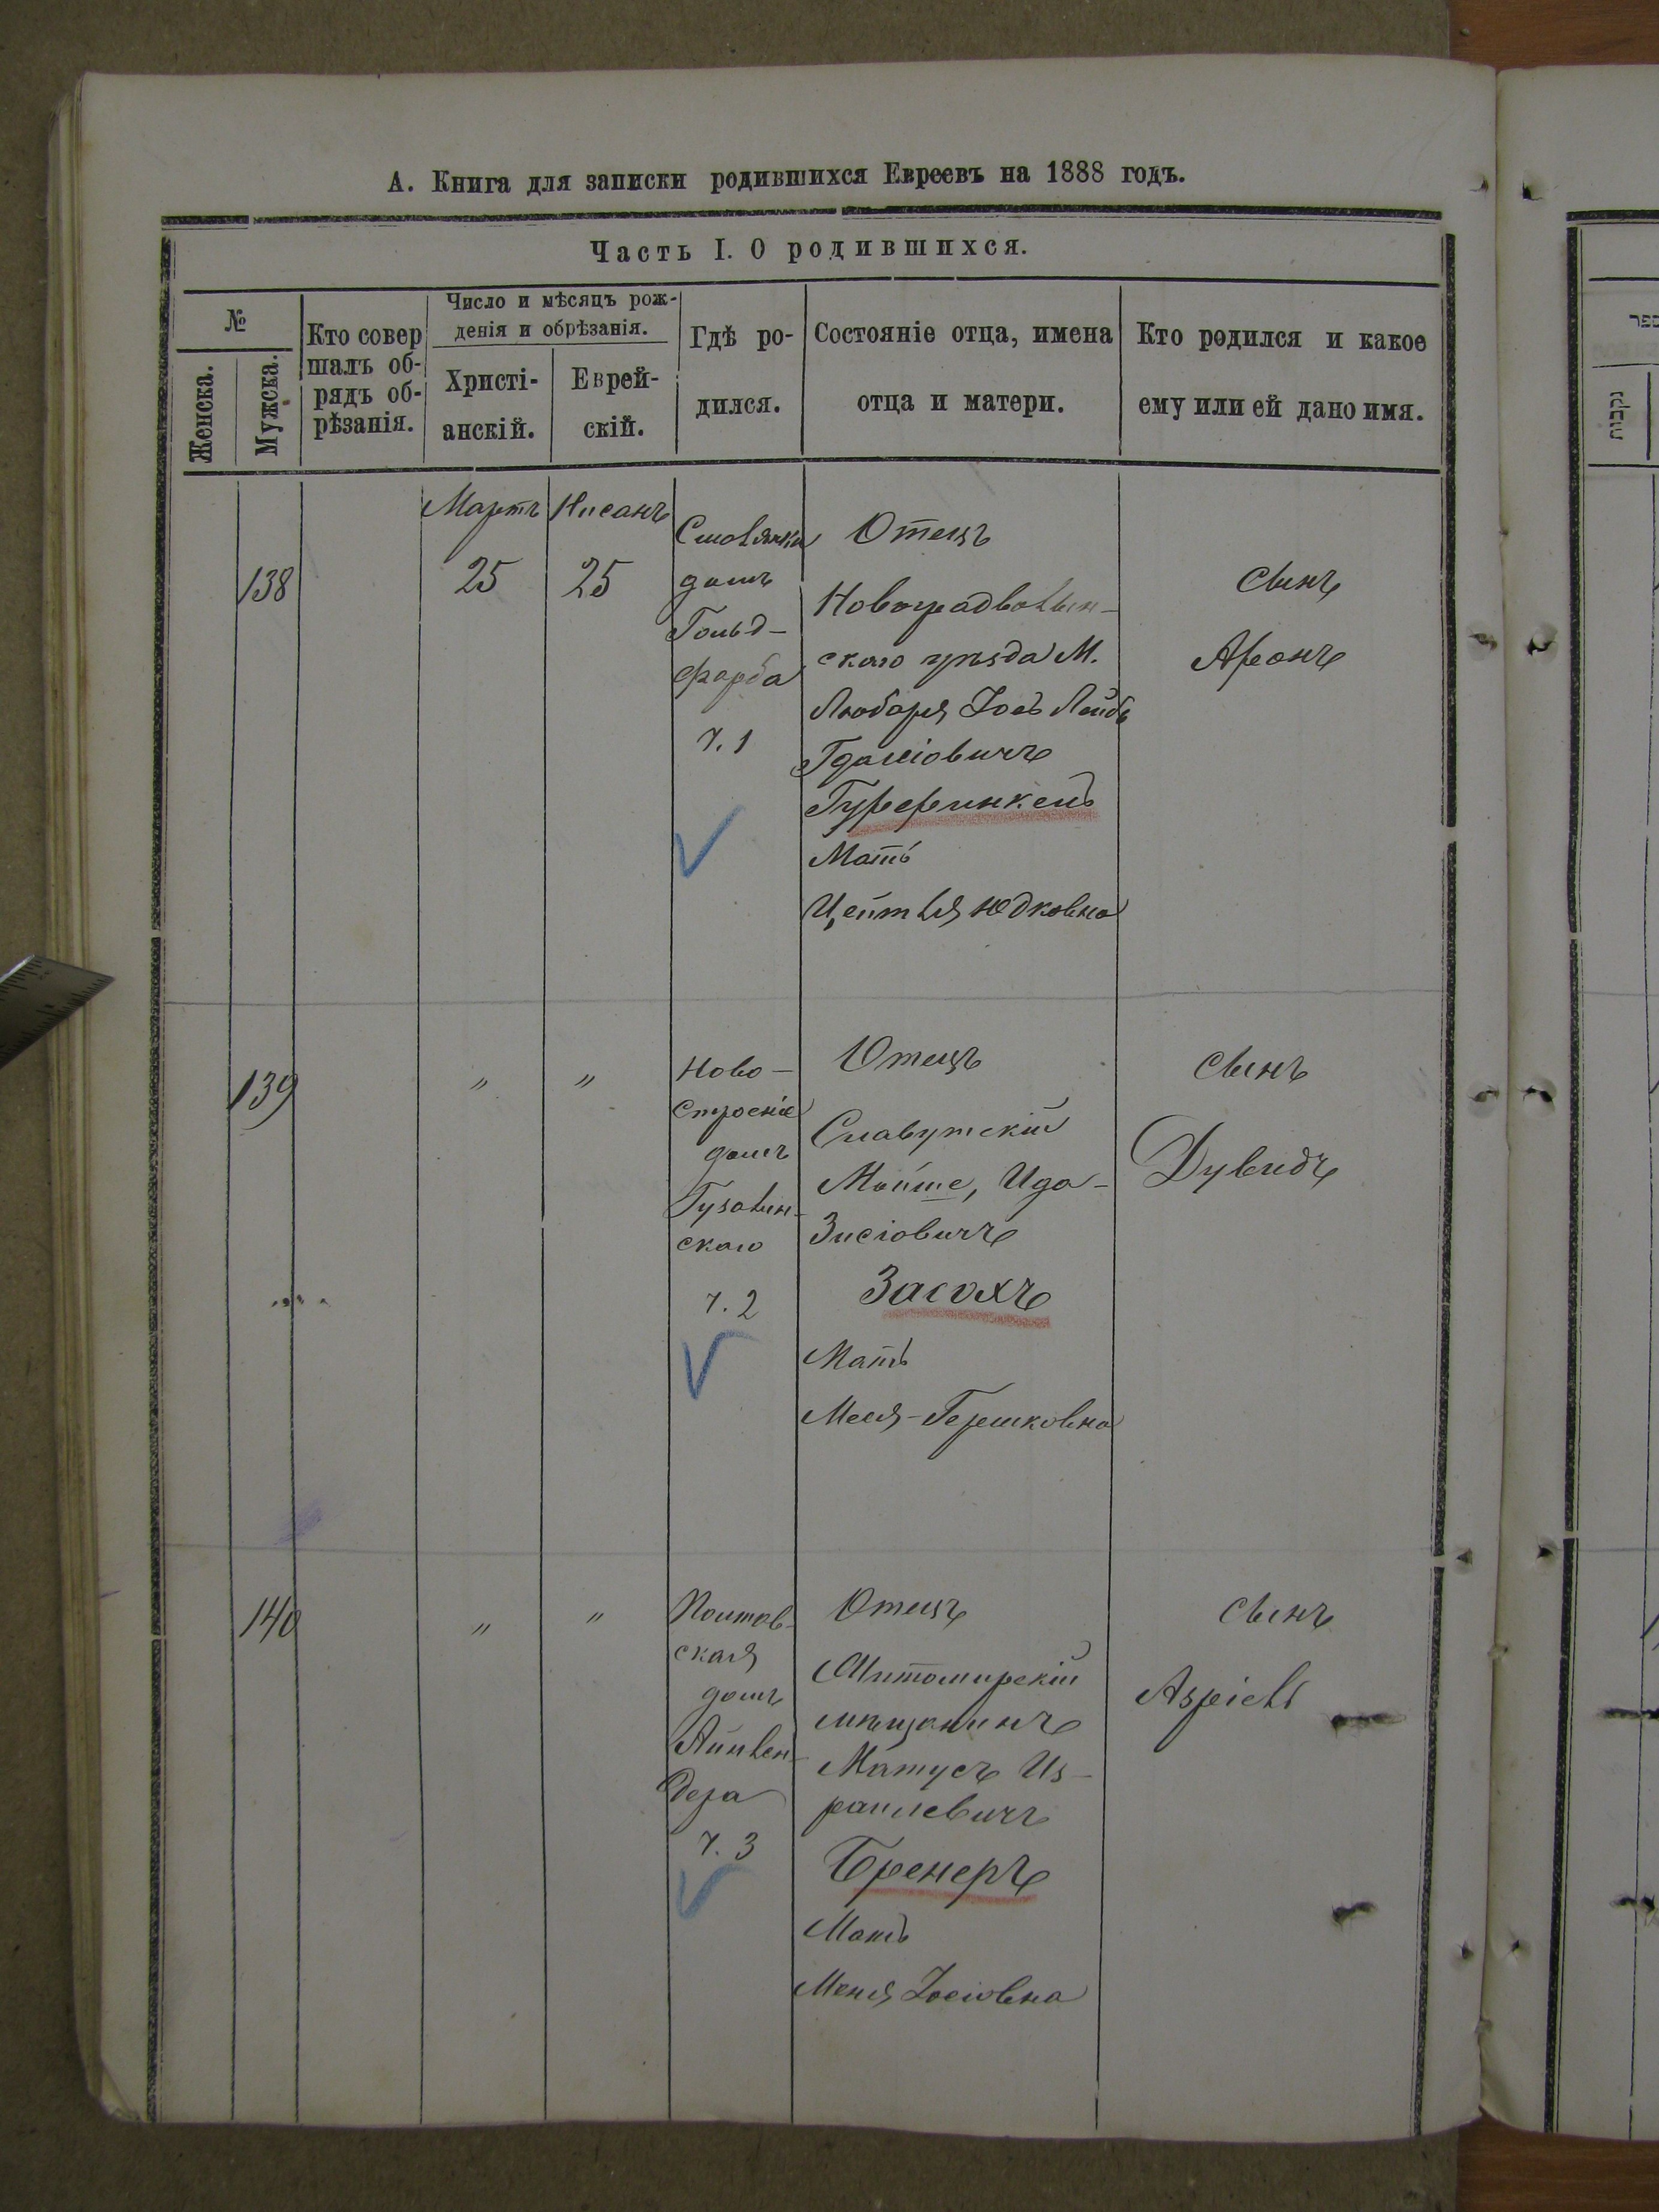 А. Книга для записки родившихся Евреевъ на 1888 годъ.
Часть I. О родившихся.
№
Женска.
Мужска.
Кто совер
шалъ об-
рядъ об-
рѣзанія.
Число и мѣсяцъ рож-
денія и обрѣзанія.
Христі-
анскій.
Еврей-
скій.
Гдѣ ро-
дился.
Состояніе отца, имена
отца и матери.
Кто родился и какое
ему или ей дано имя.
138
Мартъ
25
Нисанъ
25
Смолянка
домъ
Гольд-
фарба
ч. 1
Отецъ
Новоградволын-
скаго уѣзда М.
Любаря Іось Лейбъ
Гдаліовичъ
Гурфинкель
Мать
Цейтля Юдковна
сынъ
Аронъ
139
"
"
Ново-
строеніе
домъ
ского
ч. 2
Отецъ
Славутскій
Мойше, Ида-
Зисіовичъ
Засохъ
Мать
Герошковна
сынъ
Дувидъ
140
"
"
Полтав-
ская
домъ
дера
ч. 3
Отецъ
Житомирскій
мѣщанинъ
Матусъ Из-
раилевичъ
Бренеръ
Мать
Меня Іосіовна
сынъ
Азріель
ספר
נקבות